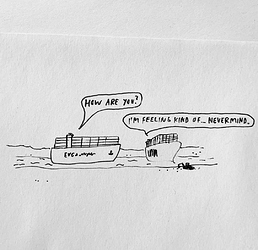 HOW ARE YOU?
I'M FEELING KIND OF... NEVERMIND.